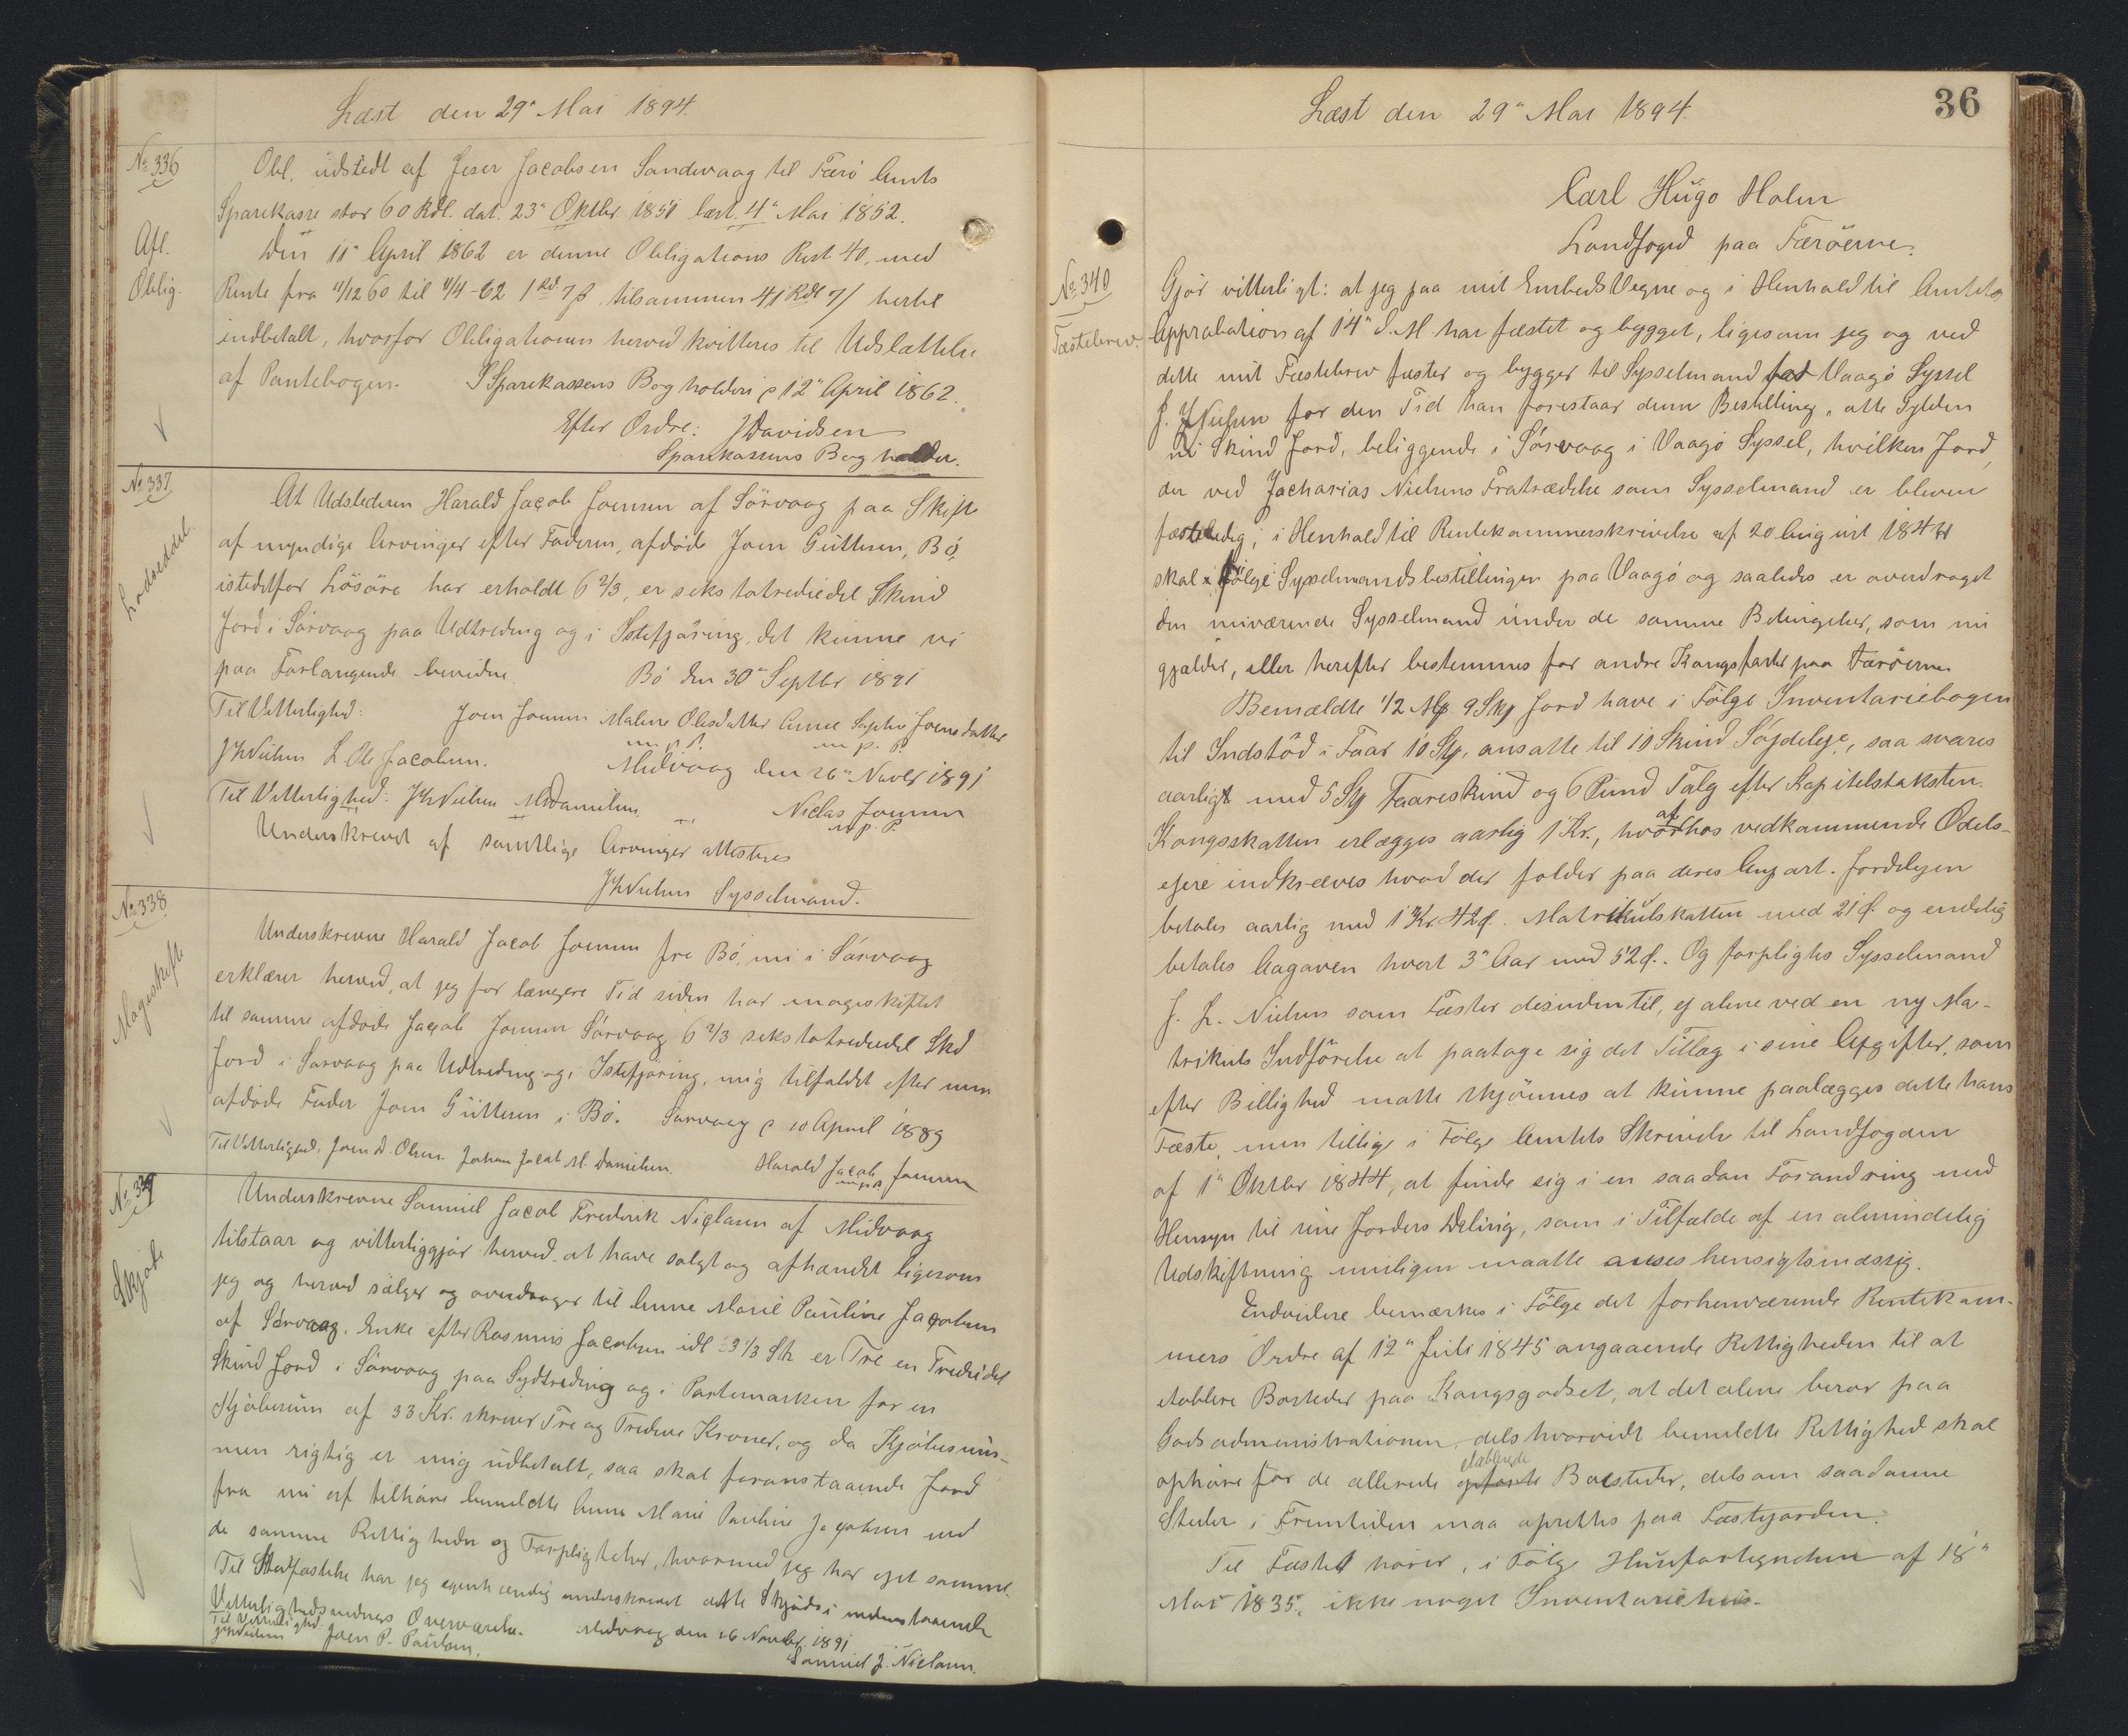 Læst den 29" Mai 1894.
No 336
Afl.
Oblig.
Obl. udstedt af Jeser Jacobsen Sandevaag til Færö Amts
Sparekasse stor 60 Rdl. dat. 23" Oktbr 1851 læst 4" Mai 1852.
Den 11" April 1862 er denne Obligations Rest 40, med
Rente fra 11/12 60 til 11/4-62 1 Rd 7 ß, tilsammen 41 Rdl 7/ hertil
indbetalt, hvorfor Obligationen herved kvitteres til Udslættelse
af Pantebogen. I Sparekassens Bogholderi p 12" April 1862.
Efter Ordre: J Davidsen
Sparekassens Bogholder.
No 337
Lodseddel
At Udstederen Harald Jacob Joensen af Sörvaag paa Skifte
af myndige Arvinger efter Faderen, afdöde Joen Guttesen, Bö,
istedetfor Lösöre har erholdt 6 2/3, er seks totrediedel Skind
Jord i Sörvaag paa Udtreding og i Istefjöring, det kunne vi
paa Forlangende bevidne. Bö den 30" Septbr 1891
Til Vitterlighed: Joen Joensen Malene Olesdatter Anne Sophie Joensdatter
m. p. P. m. p. P.
JHNielsen L Ole Jacobsen. Midvaag den 26" Novbr 1891
Til Vitterlighed: JHNielsen MDanielsen. Niclas Joensen
m. p. P.
Underskrevet af samtlige Arvinger attesteres
JHNielsen Sysselmand.
No 338
Mageskifte
Underskrevne Harald Jacob Joensen fra Bö, nu i Sörvaag
erklærer herved, at jeg for længere Tid siden har mageskiftet
til samme afdöde Jacob Joensen Sörvaag 6 2/3 seks totrediedel Skd
Jord i Sörvaag paa Udtreding og i Istefjöring, mig tilfaldet efter min
afdöde Fader Joen Guttesen i Bö. Sörvaag p 10 April 1889
Til Vitterlighed, Joen D. Olsen. Johan Jacob M. Danielsen. Harald Jacob Joensen
m. p. P.
No 339
Skjöde
Underskrevne Samuel Jacob Frederik Niclasen af Midvaag
tilstaar og vitterliggjör herved at have solgt og afhændet ligesom
jeg og herved sælger og overdrager til Anne Marie Pauline Jacobsen
af Sörvaag, Enke efter Rasmus Jacobsen idl 3 1/3 Sk er Tre en Trediedel
Skind Jord i Sörvaag paa Sydtreding og i Partemarken for en
Kjöbesum af 33 Kr. skriver Tre og Tredive Kroner, og da Kjöbesum-
men rigtig er mig udbetalt, saa skal foranstaaende Jord
fra nu af tilhöre bemeldte Anne Marie Pauline Jacobsen med
de samme Rettigheder og Forpligtelser, hvormed jeg har ejet samme.
Til Stadfæstelse har jeg egenhændig underskrevet dette Skjöde i nedenstaaende
Vitterlighedsvidners Overværelse. Midvaag den 26 Novbr. 1891
Til Vitterlighed.
JHNielsen Joen P. Paulsen. Samuel J. Niclasen.
Læst den 29" Mai 1894.
36
Carl Hugo Holm
Landfoged paa Færöerne.
No 340
Fæstebrev.
Gjör vitterligt: at jeg paa mit Embeds Vegne og i Henhold til Amtets
Approbation af 14" d. M. har fæstet og bygget, ligesom jeg og ved
dette mit Fæstebrev fæster og bygger til Sysselmand for Vaagö Syssel
J. H Nielsen for den Tid han forestaar denne Bestilling, otte Gylden
ni Skind Jord, beliggende i Sörvaag i Vaagö Syssel, hvilken Jord,
der ved Zacharias Nielsens Fratrædelse som Sysselmand er bleven
fæsteledig, i Henhold til Rentekammerskrivelse af 20 August 1844
skal fölge Sysselmandsbestillingen paa Vaagö og saaledes er overdraget
den nuværende Sysselmand under de samme Betingelser, som nu
gjælder, eller herefter bestemmes for andre Kongsfæster paa Færöerne.
Bemældte 1/2 Mk 9 Skp Jord have i Fölge Inventariebogen
til Indstöd i Faar 10 Stp. ansatte til 10 Skind Söjdeleje, saa svares
aarligt med 5 Stp Faareskind og 6 Pund Talg efter Kapitelstaksten.
Kongsskatten erlægges aarlig 1 Kr., hvoraf hos vedkommende Odels-
ejere indkræves hvad der falder paa deres Anpart. Jordelejen
betales aarlig med 1 Kr. 42 ø. Matrikulskatten med 21 ø. og endelig
betales Aagaven hvert 3" Aar med 52 ø. Og forpligtes Sysselmand
J. H. Nielsen som Fæster desuden til, ej alene ved en ny Ma-
trikuls Indförelse at paatage sig det Tillæg i sine Afgifter, som
efter Billighed maatte skjönnes at kunne paalægges dette hans
Fæste, men tillige i Fölge Amtets Skrivelse til Landfogden
af 1" Oktbr 1844, at finde sig i en saadan Forandring med
Hensyn til sine Jorders Deling, som i Tilfælde af en almindelig
Udskiftning muligen maatte anses hensigtsmæssig.
Endvidere bemærkes i Fölge det forhenværende Rentekam-
mers Ordre af 12" Juli 1845 angaaende Rettigheden til at
etablere Bosteder paa Kongsgodset, at det alene beror paa
Godsadministrationen, dels hvorvidt bemeldte Rettighed skal
ophöre for de allerede etablerede Bosteder, dels om saadanne
Steder i Fremtiden maa oprettes paa Fæstejorden.
Til Fæstet hörer, i Fölge Husfortegnelsen af 18"
Mai 1835, ikke noget Inventariehus.